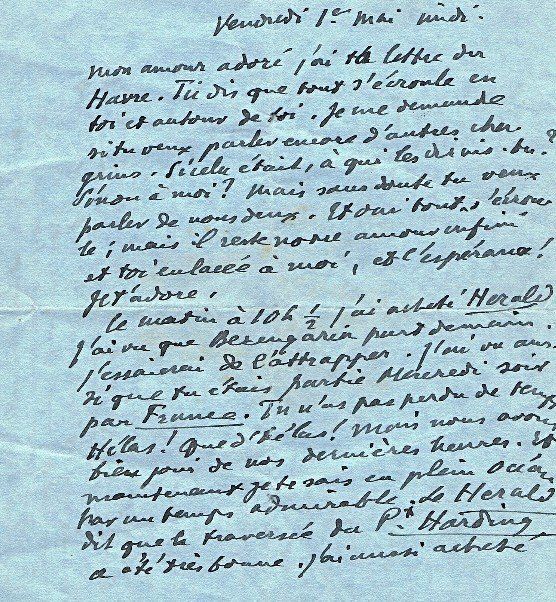 Vendredi 1er mai midi.
mon amour adoré j'ai ta lettre du
Havre. Tu dis que tout s'écroule en
toi et autour de toi. Je me demande
si tu veux parler encore d'autres cha-
grins. Si cela était, à qui les dirais-tu?
Sinon à moi? Mais sans doute tu veux
parler de nous deux. Et oui tout s'écrou
le; mais il reste notre amour infini
et toi enlacée à moi, et l'espérance!
Je t'adore.
Ce matin à 10h ½ j'ai acheté Herald
J'ai vu que Berengaria part demain.
J'essaierai de l'attrapper. J'ai vu aus
si que tu étais partie Mercredi soir
par France. Tu n'as pas perdu de temps
Hélas! Que d'hélas! Mais nous avons
bien joui de nos dernières heures. Et
maintenant je te sais en plein Océan
par un temps admirable. Le Herald
dit que la traversée du Pt Harding
a été très bonne. J'ai aussi acheté